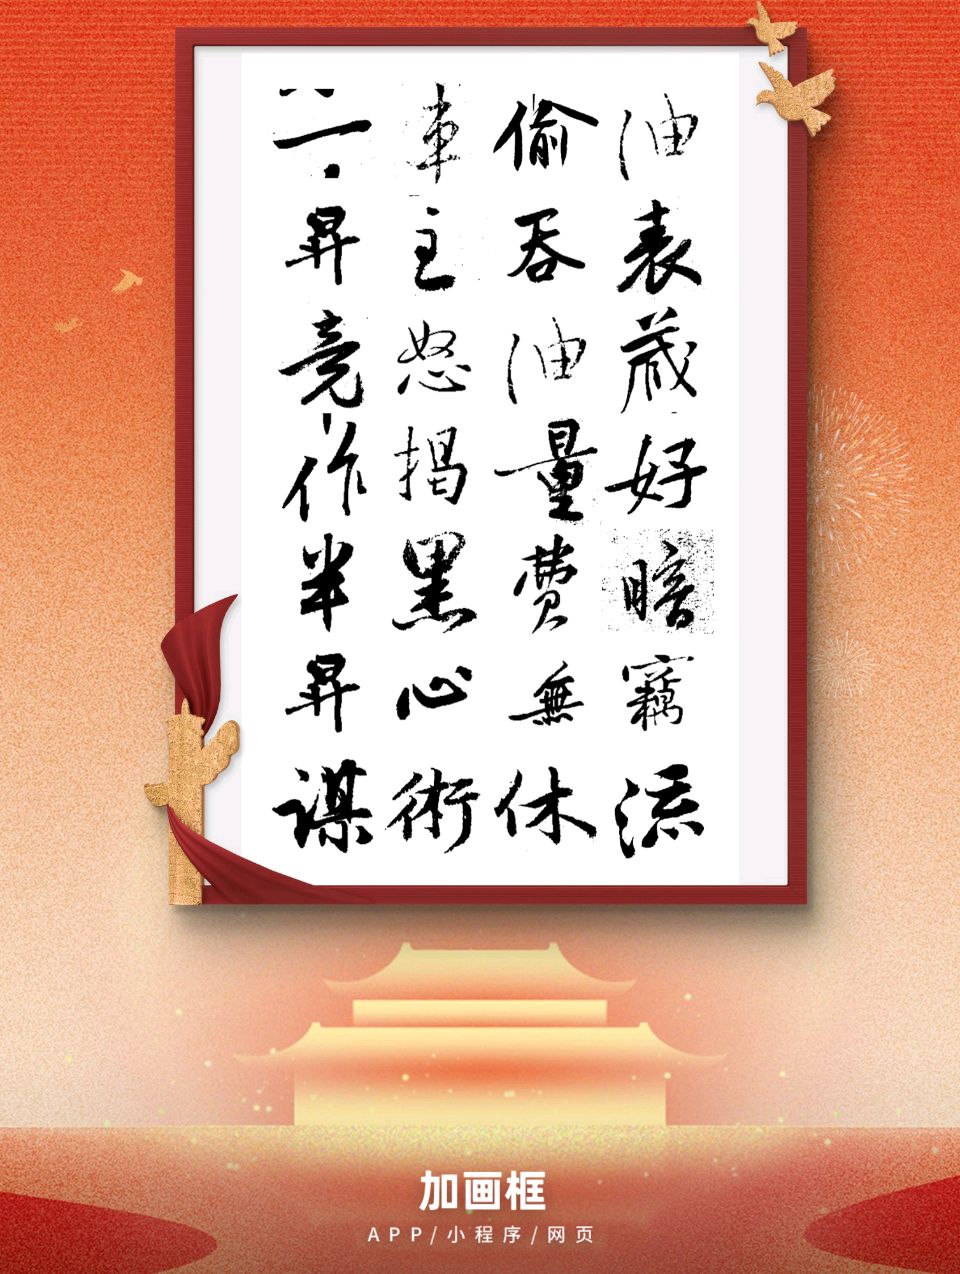 油表藏好暗竊流
偷吞油量費無休
車主怒揭黑心術
一昇竟作半昇謀
加画框
APP/小程序/网页